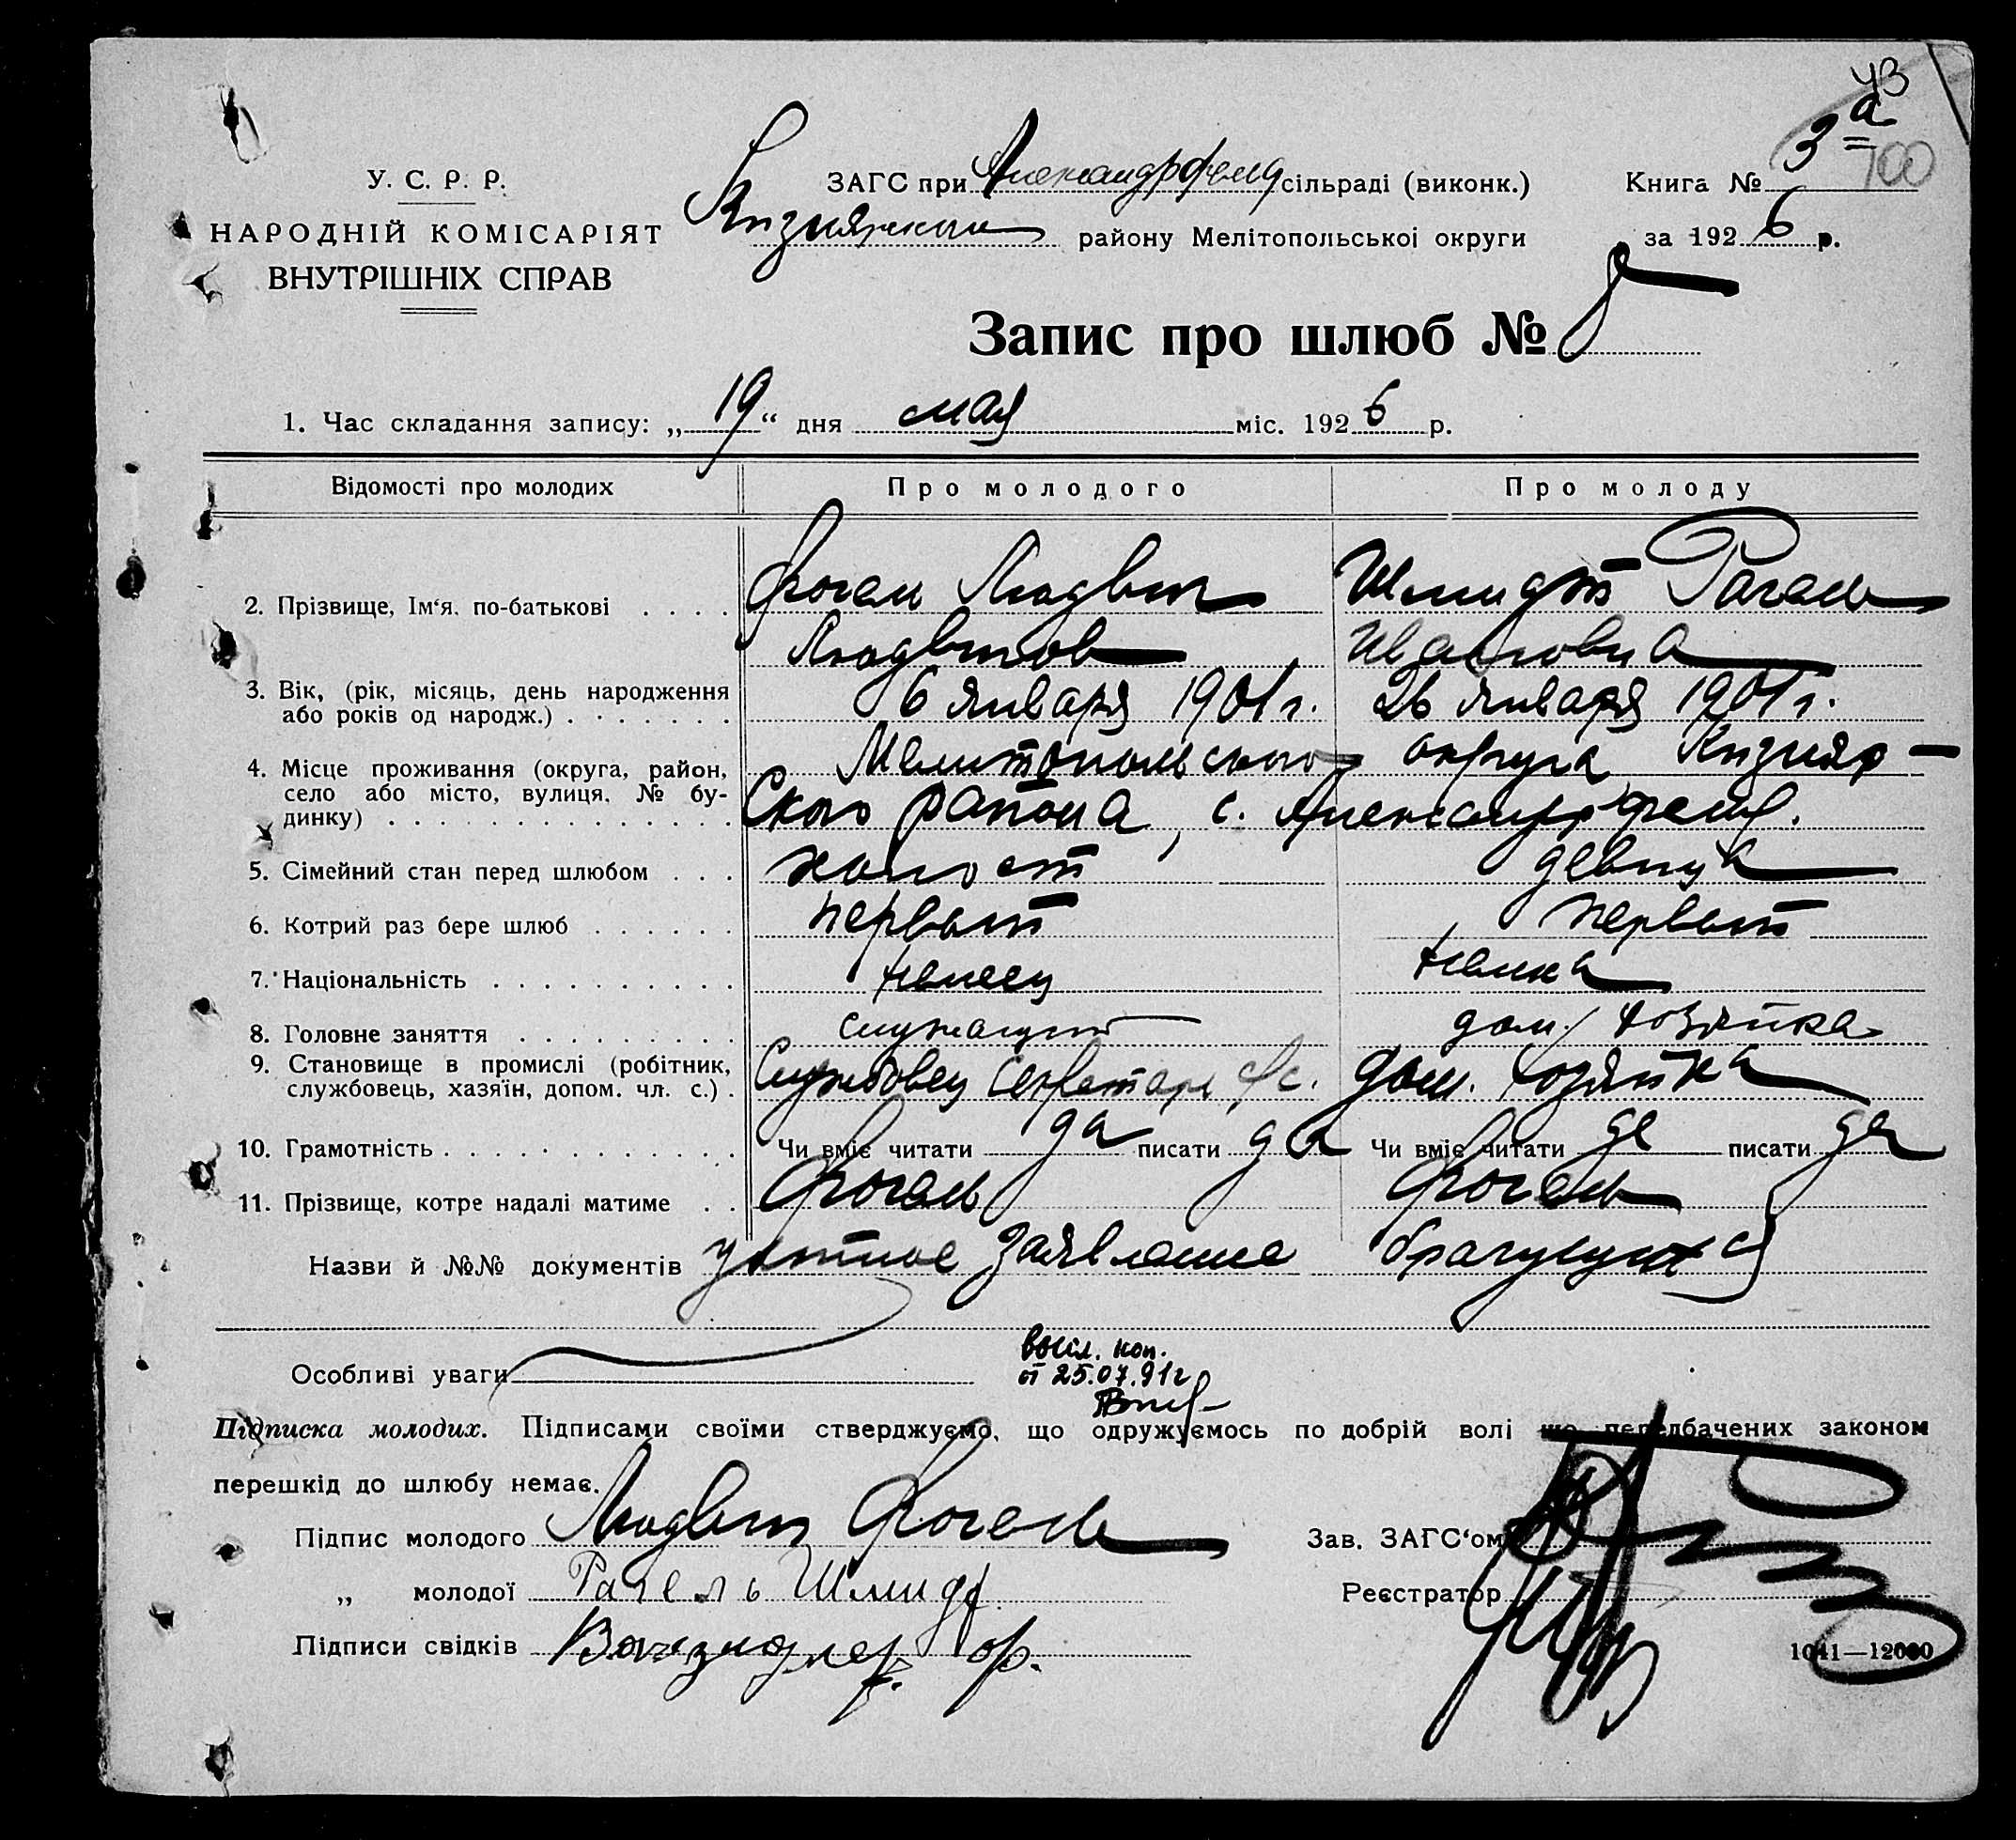 43
а
У. С. Р. Р.
ЗАГС при Александрфельд сільраді (виконк.)
Книга № 3
100
НАРОДНІЙ КОМІСАРІЯТ
Кизиярском району Мелітопольської округи
за 1926 р.
ВНУТРІШНІХ СПРАВ
Запис про шлюб № 8
1. Час складання запису: „19“ дня мая міс. 1926 р.
Відомості про молодих
Про молодого
Про молоду
2. Прізвище, Ім‘я, по-батькові . . . .
Фогель Людвиг
Шмидт Рагель
Людвигов
Ивановна
3. Вік, (рік, місяць, день народження
або років од народж.) . . . . . . .
6 января 1901 г.
26 января 1901 г.
4. Місце проживання (округа, район,
село або місто, вулиця, № бу-
динку) . . . . . . . . . . . . . .
Мелитопольского округа Кизияр-
ского района, с. Александрфельд.
5. Сімейний стан перед шлюбом . . .
холост
девица
6. Котрий раз бере шлюб . . . . . .
первый
первый
7. Національність . . . . . . . . . .
немец
немка
8. Головне заняття . . . . . . . . .
служащий
дом. хозяйка
9. Становище в промислі (робітник,
службовець, хазяїн, допом. чл. с.) .
Службовец секретарь с/с.
дом. хозяйка
10. Грамотність . . . . . . . . . . . .
Чи вміє читати да писати да
Чи вміє читати да писати да
11. Прізвище, котре надалі матиме . .
Фогель
Фогель
Назви й №№ документів устное заявление брачующихся
Особливі уваги
высл. коп.
от 25.07.91г
Підписка молодих. Підписами своїми стверджуємо, що одружуємось по добрій волі що передбачених законом
перешкід до шлюбу немає.
Підпис молодого Людвиг Фогель
Зав. ЗАГС‘ом
„ молодої Рагель Шмидт
Реєстратор
Підписи свідків
1041—12000